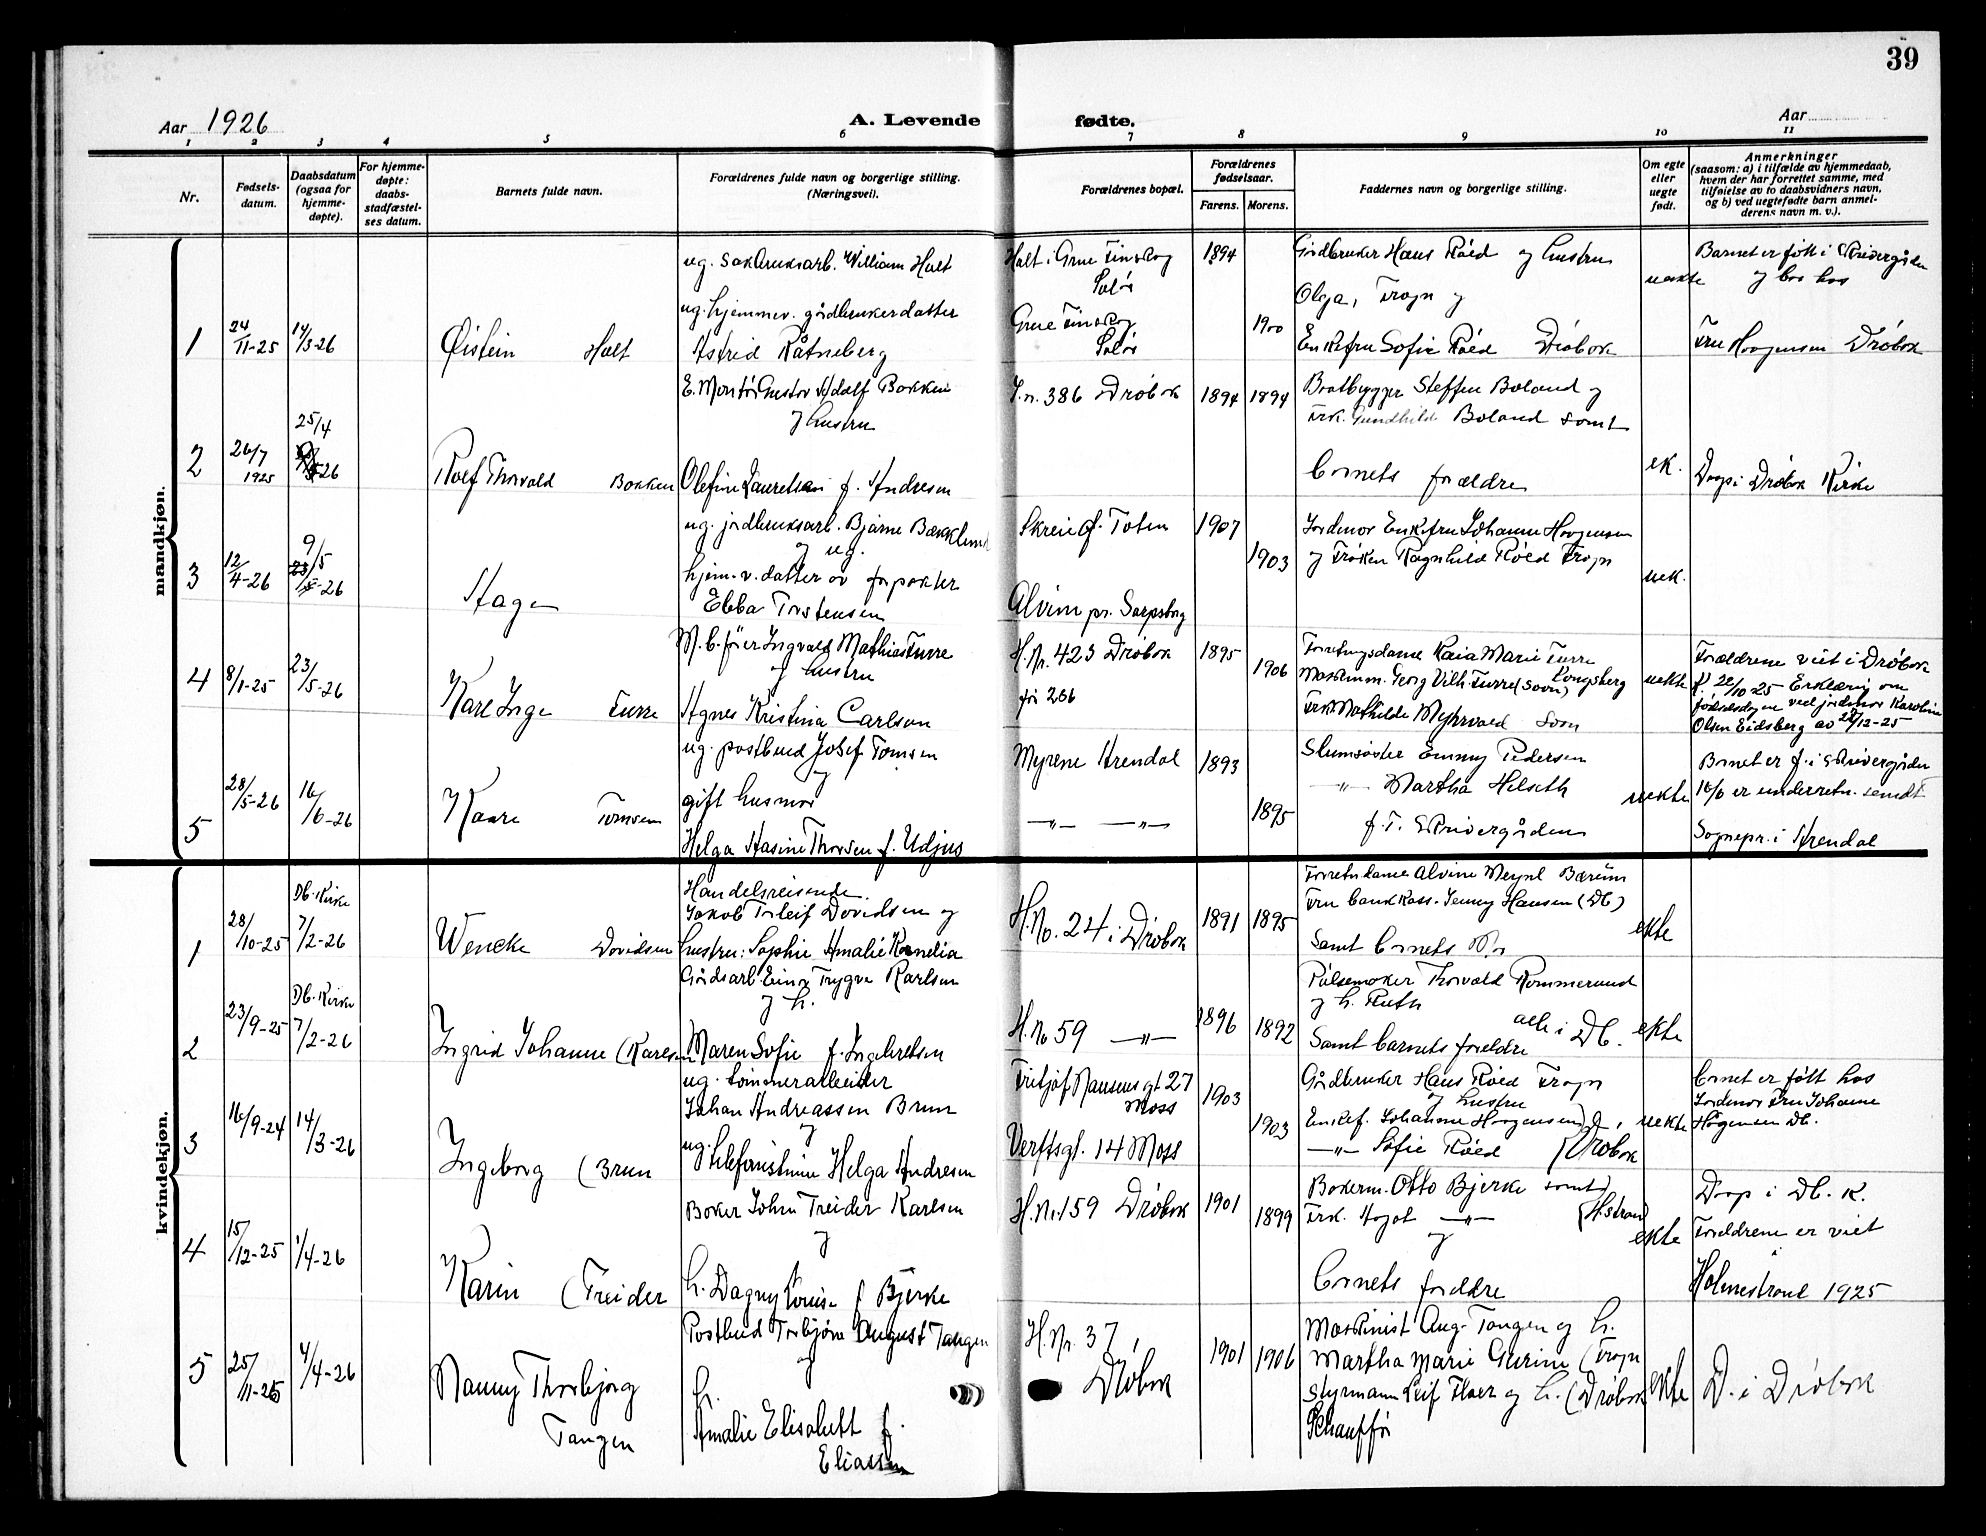 39
Aar 1926
A. Levende fødte.
Aar
1 2 3 4 5 6 7 8 9 10 11
Nr.
Fødsels-
datum.
Daabsdatum
(ogsaa for
hjemme-
døpte).
For hjemme-
døpte:
daabs-
stadfæstel-
ses datum.
Barnets fulde navn.
Forældrenes fulde navn og borgerlige stilling.
(Næringsvei).
Forældrenes bopæl.
Forældrenes
fødselsaar.
Farens. Morens.
Faddernes navn og borgerlige stilling.
Om egte
eller
uegte
født.
Anmerkninger
(saasom: a) i tilfælde av hjemmedaab,
hvem der har forrettet samme, med
tilføielse av to daabsvidners navn,
og b) ved uegtefødte barn anmel-
derens navn m. v.).
mandkjøn.
1
24/11-25
14/3-26
Øistein Holt
ug. William Holt
ug. hjemmev. gårdbruker datter
Astrid Råtneberg
Holt i Grue Finskog
Solør
Grue Finskog
Solør
1894
1900
Gårdbruker Hans Røed og hustru
Olga, Frogn og
Enkefru Sofie Røed Drøbak
uekte
Barnet er født i Skrivergården
og bor hos
Fru Haagensen Drøbak
2
26/7
1925
25/4
26
Rolf Thorvald Bakken
E. Montør Gustav Adolf Bakken
og hustru
Olefine Lauretse f. Andresen
H.n. 386 Drøbak
1894 1894
Båtbygger Steffen Boland og
Frk. Gundhild Boland samt
barnets forældre
ek.
Døpt i Drøbak Kirke
3
12/4-26
9/5
23/5-26
Hage
ug. jordbruksarb. Bjarne Bækklund
og ug.
hjem.v. datter av forpakter
Ebba Torstensen
Skreia Ø. Toten
Alvim pr. Sarpsborg
1907
1903
Jordmor Enkefru Johanne Haagensen
og Frøken Ragnhild Røed Frogn
uek.
4
8/1-25
23/5-26
Karl Inge Furre
M.b.fører Ingvald Mathias Furre
og hustru
Agnes Kristina Carlson
H.Nr. 423 Drøbak
før 266
1895
1906
Forretningsdame Kaia Marie Furre
Maskinm. Georg Vilh Furre (Son) Kongsberg
Frk. Mathilde Myhrvold Son
uekte
Forældrene viet i Drøbak
K. 20/10-25 Erklæring om
fødselsdagen ved jordmor Karoline
Olsen Eidsberg av 28/12-25
5
28/5-26
16/6-26
Kaare Tomsen
ug. postbud Josef Tomsen
og
gift husmor
Helga Hasine Thorsen f. Udjus
Myrene Arendal
—"— —"—
1893
1895
Slumsøster Emmy Pedersen
—"— Martha Helseth
f.T. Skrivergården
uekte
Barnet er f. i Skrivergården
16/6 er underretn. sendt
Sognepr. i Arendal
kvindekjøn.
1
28/10-25
Db. Kirke
7/2-26
Wencke Davidsen
Handelsreisende
Jakob Torleif Davidsen og
hustru: Sophie Amalie Kornelia
H.No. 24 i Drøbak
1891 1895
Forretn.dame Alvine Meyel Bærum
Fru bankkass. Jenny Hansen (Db)
Samt barnets Mor
ekte
2
23/9-25
Db. Kirke
7/2-26
Ingrid Johanne (Karlsen
Gårdsarb. Einar Trygve Karlsen
og h.
Maren Sofie f. Ingebretsen
H.No 59 —"—
1896 1892
Pølsemaker Thorvald Rommerund
og h. Ruth
alle i Db.
Samt barnets foreldre
ekte
3
16/9-24
14/3-26
Ingeborg (Brun
ug. tømmerarbeider
Johan Andreassen Brun
og
ug. telefonistinne Helga Andresen
Fritjof Nansens gt 27
Moss
Verftsgt. 14 Moss
1903
1903
Gårdbruker Hans Røed Frogn
og hustru
Enkef. Johanne Haagensen
—"— Sofie Røed (Drøbak
uekte
barnet er født hos
Jordmor Fru Johanne
Hågensen Db.
4
15/12-25
1/4-26
Karin (Treider
Baker John Treider Karlsen
og
h. Dagny Louise f Bjerke
H.Nr. 159 Drøbak
1901
1899
Bakerm. Otto Bjerke samt
Frk. Aagot —"— (H.strand
og
barnets foreldre
ekte
Døpt i Db. K.
Foreldrene er viet
Holmestrand 1925
5
25/11-25
4/4-26
Nanny Thorbjørg
Tangen
Postbud Torbjørn August Tangen
og
h.
Amalie Elisabett f.
Eliassen
H.Nr. 37,
Drøbak
1901 1906
Maskinist Aug. Tangen og h.
Martha Marie Gurine (Frogn
Styrmann Leif Floer og h. (Drøbak
Schauffør
ekte
D. i Drøbak